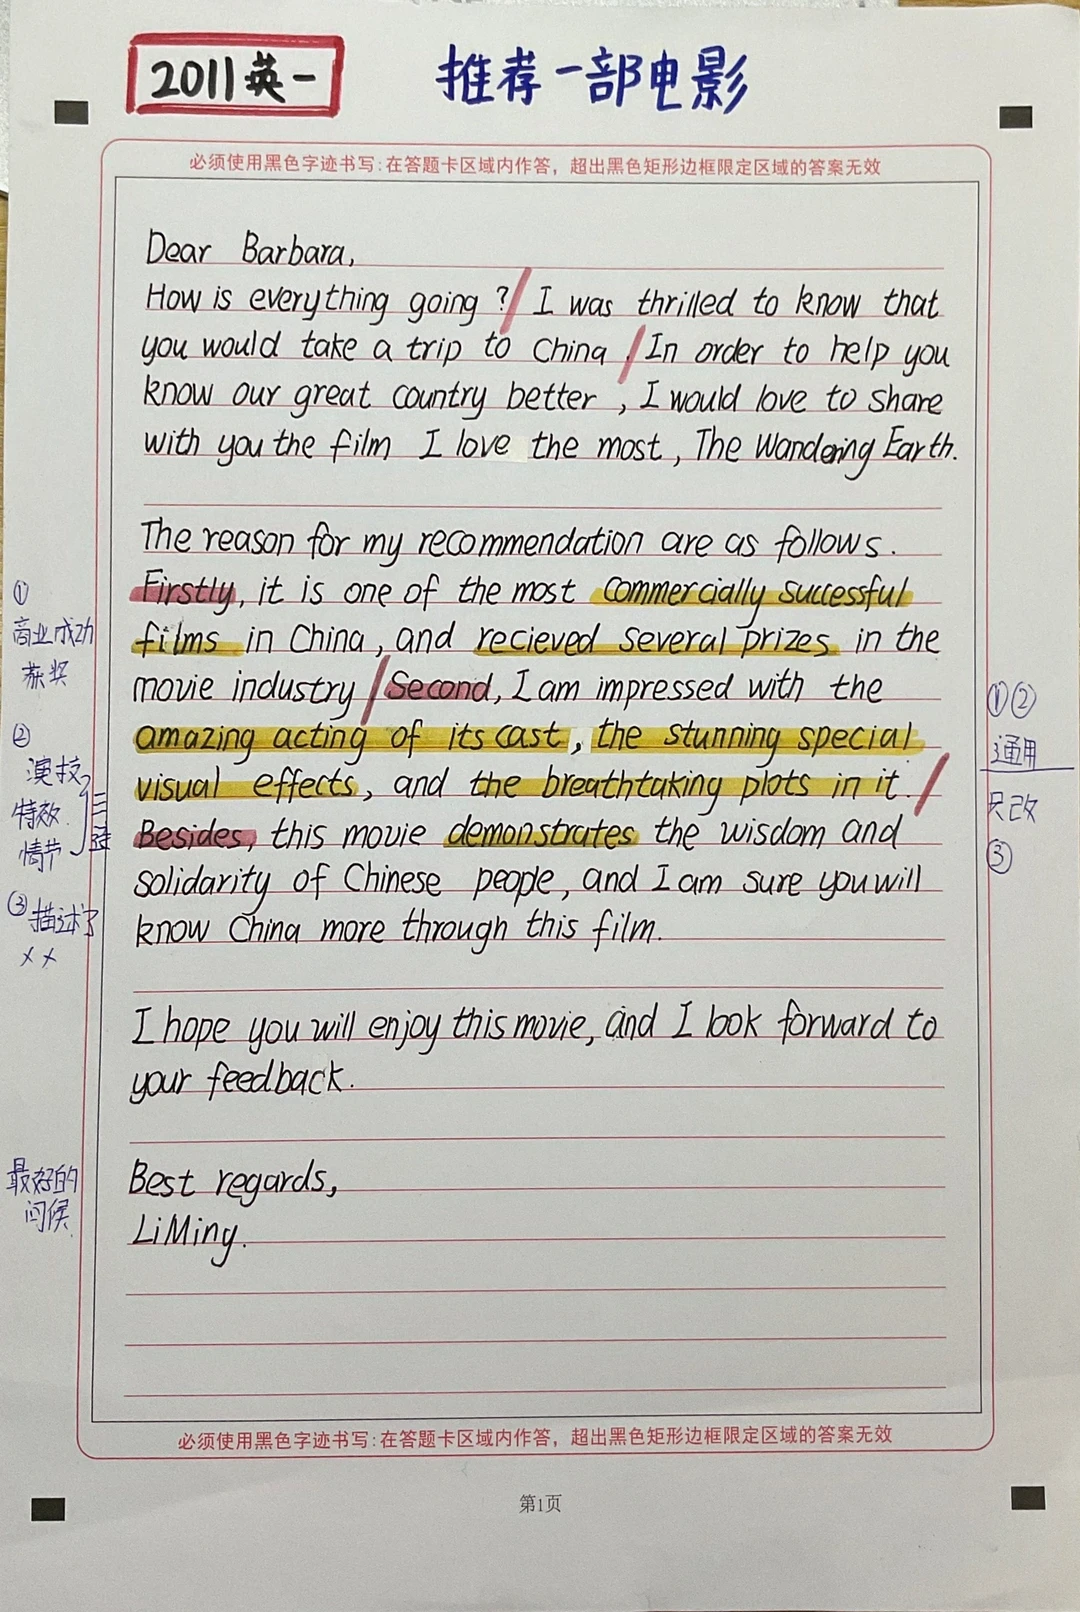 2011英一
推荐一部电影
必须使用黑色字迹书写:在答题卡区域内作答，超出黑色矩形边框限定区域的答案无效
Dear Barbara,
How is everything going ? I was thrilled to know that
you would take a trip to China . In order to help you
know our great country better , I would love to share
with you the film I love the most , The Wandering Earth.
The reason for my recommendation are as follows .
Firstly, it is one of the most commercially successful
films in China , and recieved several prizes in the
movie industry Second, I am impressed with the
amazing acting of its cast , the stunning special
visual effects, and the breathtaking plots in it .
Besides, this movie demonstrates the wisdom and
solidarity of Chinese people, and I am sure you will
know China more through this film.
I hope you will enjoy this movie, and I look forward to
your feedback.
Best regards,
Li Ming.
①
商业成功
获奖
②
演技
特效
情节
三连
③描述了
××
最好的
问候
①②
通用
只改
③
必须使用黑色字迹书写:在答题卡区域内作答，超出黑色矩形边框限定区域的答案无效
第1页